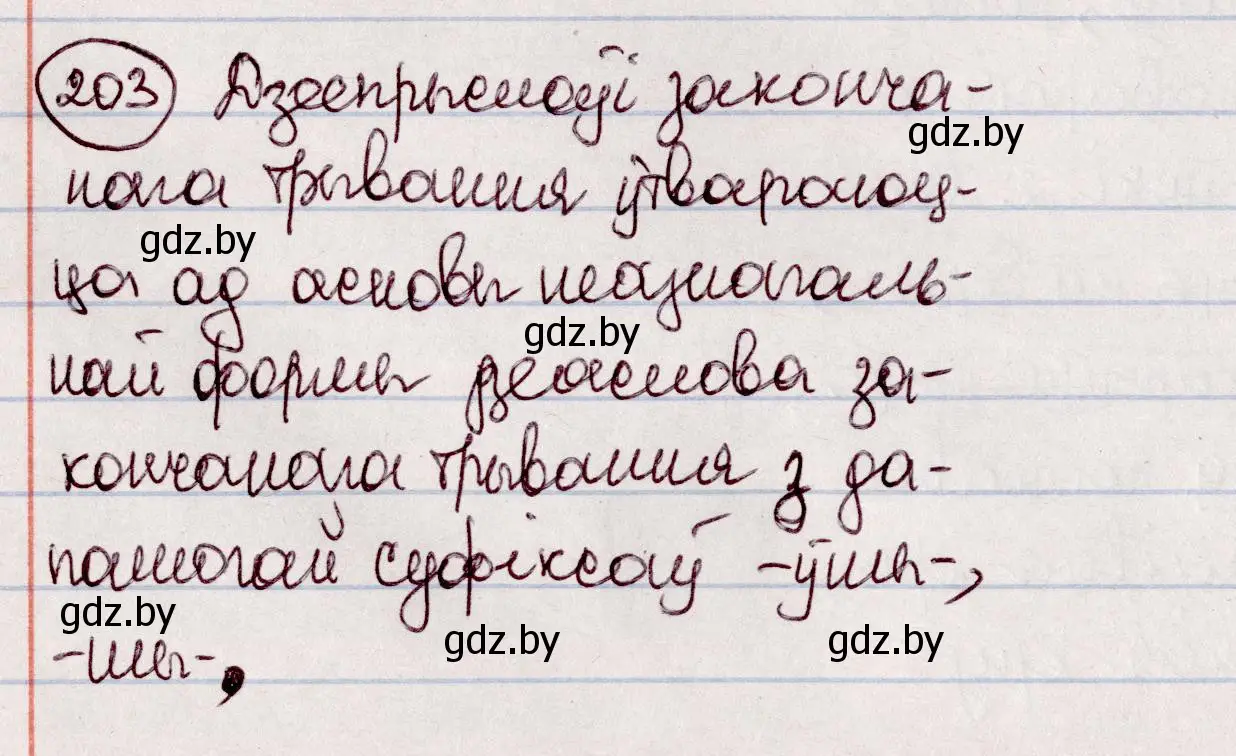 203 Дзеепрыслоўі законча-
нага трывання ўтвараюц-
ца ад асновы неазначаль-
най формы дзеяслова за-
кончанага трывання з да-
памогай суфіксаў -ўшы-,
-шы-,
gdz.by
gdz.by
gdz.by
gdz.by gdz.by gdz.by